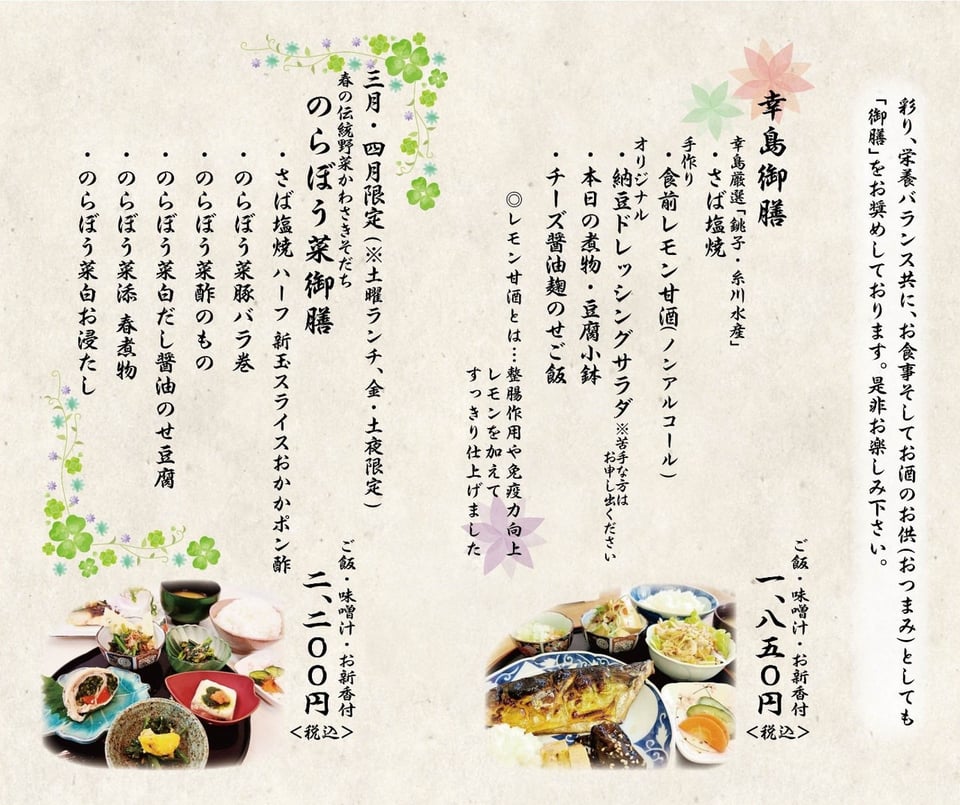 彩り、栄養バランス共に、お食事そしてお酒のお供(おつまみ)としても
「御膳」をお奨めしております。是非お楽しみ下さい。
幸島御膳
ご飯・味噌汁・お新香付
一、八五〇円
<税込>
幸島厳選「銚子・糸川水産」
・さば塩焼
手作り
・食前レモン甘酒(ノンアルコール)
オリジナル
・納豆ドレッシングサラダ
※苦手な方は
お申し出ください
・本日の煮物・豆腐小鉢
・チーズ醤油麹のせご飯
◎レモン甘酒とは…整腸作用や免疫力向上
レモンを加えて
すっきり仕上げました
三月・四月限定(※土曜ランチ、金・土夜限定)
春の伝統野菜かわさきそだち
のらぼう菜御膳
ご飯・味噌汁・お新香付
二、二〇〇円
<税込>
・さば塩焼 ハーフ 新玉スライスおかかポン酢
・のらぼう菜豚バラ巻
・のらぼう菜酢のもの
・のらぼう菜白だし醤油のせ豆腐
・のらぼう菜添 春煮物
・のらぼう菜白お浸たし